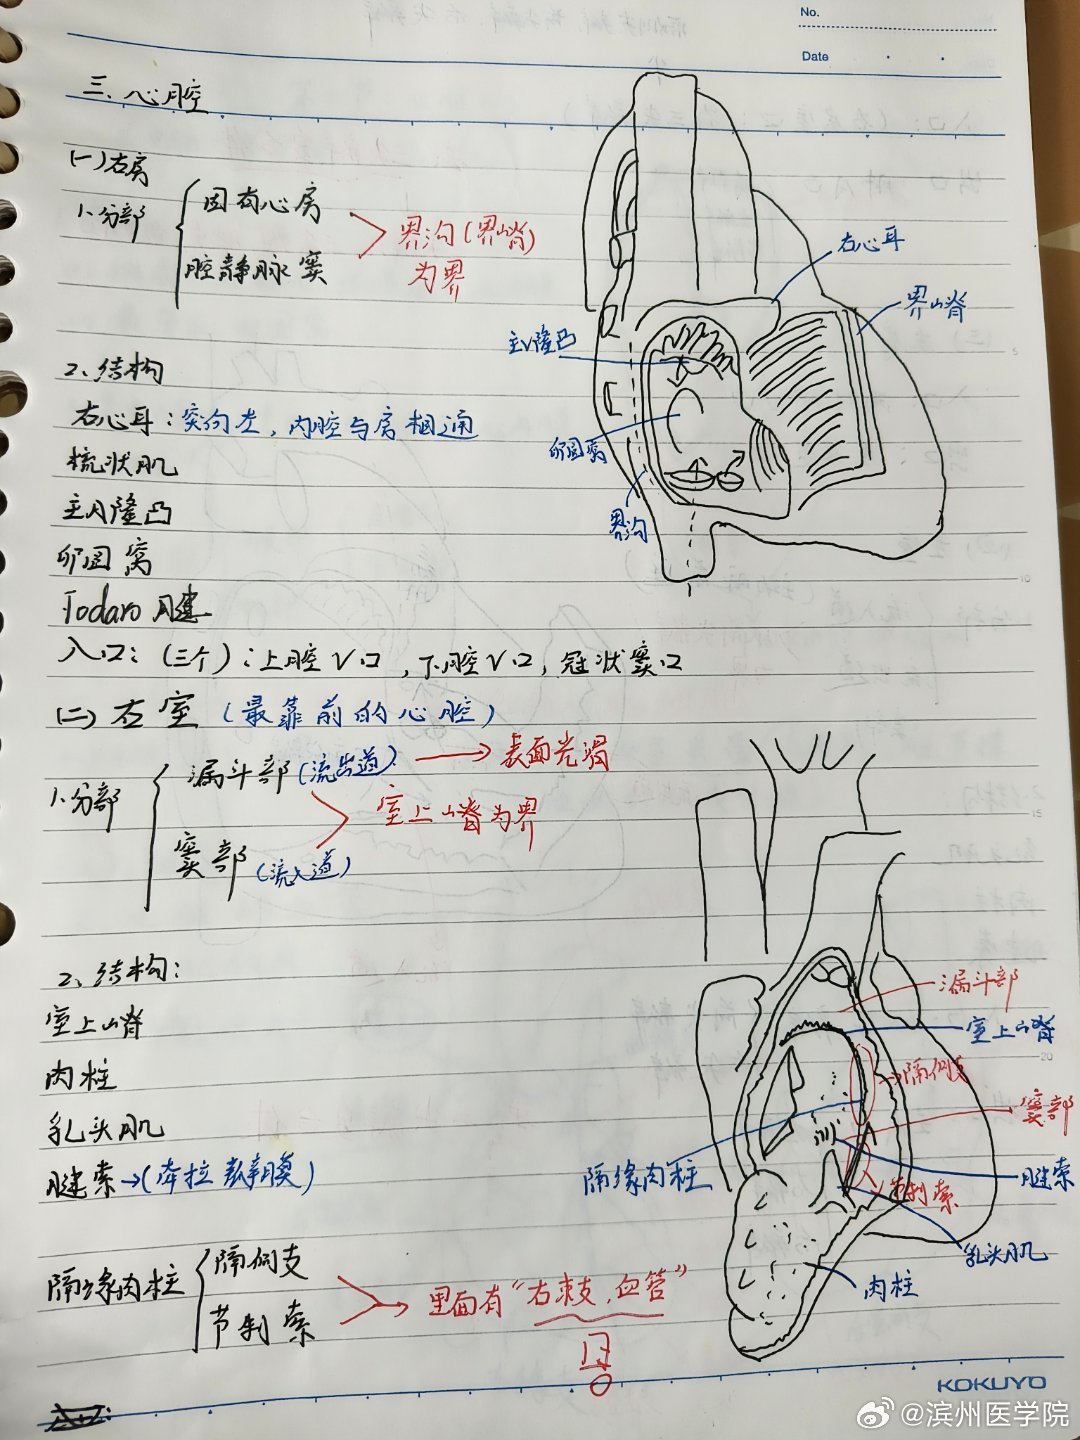 No.
Date
三、心腔
(一)右房
1、分部
固有心房
腔静脉窦
界沟(界嵴)
为界
2、结构
右心耳：突向左，内腔与房相通
梳状肌
主A隆凸
卵圆窝
Todaro腱
入口：(三个)：上腔V口，下腔V口，冠状窦口
右心耳
界嵴
主V隆凸
卵圆窝
界沟
(二)右室(最靠前的心腔)
1、分部
漏斗部(流出道)→表面光滑
窦部(流入道)
室上嵴为界
2、结构：
室上嵴
肉柱
乳头肌
腱索→(牵拉瓣膜)
隔缘肉柱
隔侧支
节制索
里面有“右束支，血管”
漏斗部
室上嵴
隔侧支
窦部
腱索
节制索
乳头肌
肉柱
隔缘肉柱
入口：
KOKUYO
@滨州医学院